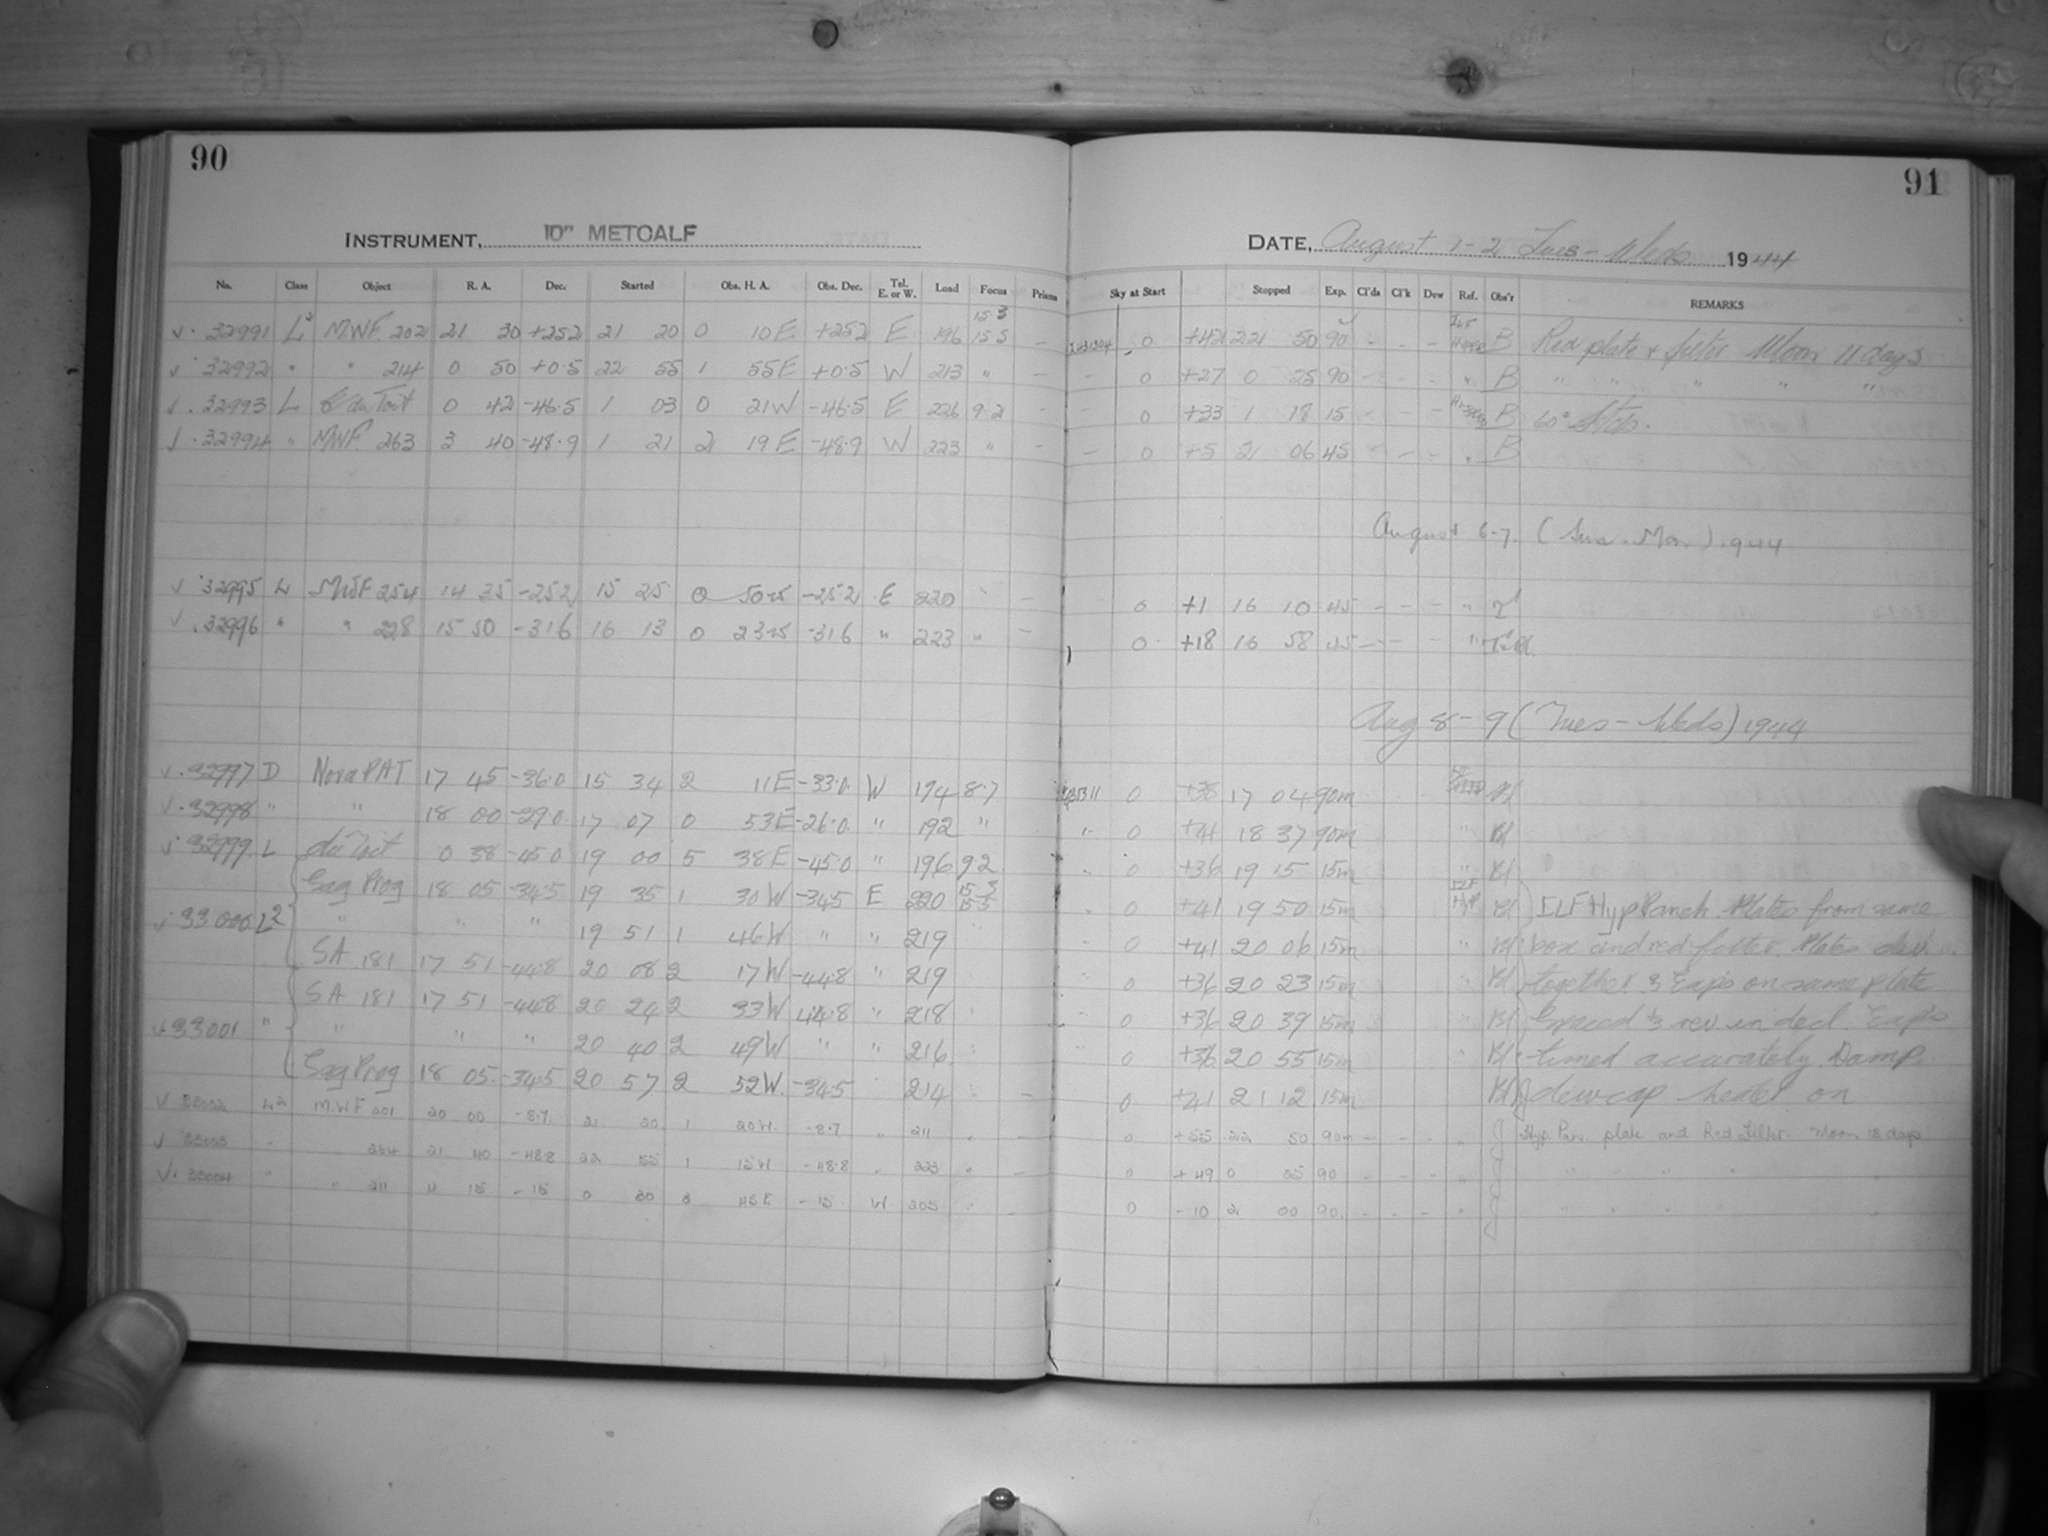 90
91
INSTRUMENT, 10" METCALF
DATE, August 1-2 Tues-Weds 1944
No. Class Object R. A. Dec. Started Obs. H. A. Obs. Dec. Tel. E. or W. Load Focus Prisms Sky at Start Stopped Exp. Cl'ds Cl'k Dew Ref. Obs'r REMARKS
32991 L² MWF 202 21 30 +25.2 21 20 0 10E +25.2 E 196 15.3 15.5 – 0 +42 22 50 90 - - - B Red plate + filter Moon 11 days
32992 " " 214 0 50 +0.5 22 55 1 55E +0.5 W 213 " – – 0 +27 0 25 90 - - - " B " " " " "
32993 L du Toit 0 42 -46.5 1 03 0 21W -46.5 E 226 9.2 – – 0 +33 1 18 15 - - - B 60° Stop.
32994 " MWF. 263 3 40 -48.9 1 21 2 19E -48.9 W 223 " – – 0 +5 2 06 45 - - - " B
August 6-7. (Sun.-Mon.) 1944
32995 L MWF 254 14 35 -25.2 15 25 0 50W -25.2 E 220 " – 0 +1 16 10 45 – – – "
32996 " " 228 15 50 -31.6 16 13 0 23W -31.6 " 223 " – 0 +18 16 58 45 – – – "
Aug 8-9 (Tues-Weds) 1944
32997 D Nova PAT 17 45 -36.0 15 34 2 11E -33.0 W 194 8.7 0 +38 17 04 90m Bl
32998 " " 18 00 -29.0 17 07 0 53E -26.0 " 192 " " 0 +41 18 37 90m " Bl
32999 L du Toit 0 38 -45.0 19 00 5 38E -45.0 " 196 9.2 " 0 +36 19 15 15m " Bl
Sag Prog 18 05 -34.5 19 35 1 30W -34.5 E 220 15.3 15.5 " 0 +41 19 50 15m ILF Hyp Bl ILF Hyp Panch. Plates from same
33000 L2 " " " 19 51 1 46W " " 219 " 0 +41 20 06 15m " Bl box and red filter. Plates dev.
SA 181 17 51 -44.8 20 08 2 17W -44.8 " 219 " 0 +36 20 23 15m " Bl together 3 Exps on same plate
SA 181 17 51 -44.8 20 24 2 33W -44.8 " 218 " 0 +36 20 39 15m " Bl Spaced ⅓ rev in decl. Exps
33001 " " " " 20 40 2 49W " " 216 " 0 +36 20 55 15m " Bl timed accurately. Damp.
Sag Prog 18 05 -34.5 20 57 2 52W -34.5 214 " – 0 +41 21 12 15m Bl dewcap heater on
33002 L2 M.W.F 201 20 00 -8.7 21 20 1 20W. -8.7 " 211 " 0 +55 22 50 90m - - - " J Hyp. Pan. plate and Red Filter. Moon 18 days
33003 " 21 40 -48.8 22 55 1 15W -48.8 " 223 " – 0 +49 0 25 90 - - - " J " " " "
33004 " " 211 4 15 -15 0 30 3 45E -15 W 205 " – 0 -10 2 00 90 - - - " J " " " "